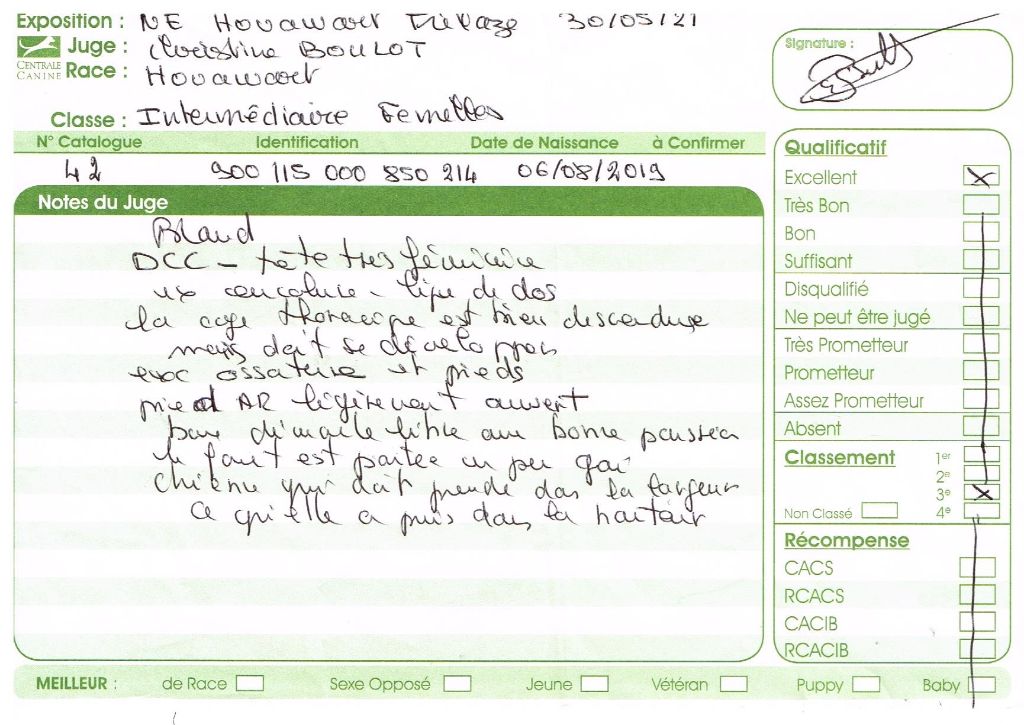 Exposition : NE Hovawart Trélazé 30/05/21
Juge : Christine BOULOT
CENTRALE CANINE
Race : Hovawart
Signature :
Classe : Intermédiaire Femelles
N° Catalogue Identification Date de Naissance à Confirmer
42 900 115 000 850 214 06/08/2019
Notes du Juge
Blond
DCC - tête très féminine
encolure - ligne de dos
la cage thoracique est bien descendue
mais doit se développer
avec ossature et pieds
pied AR légèrement ouvert
démarche libre bonne
le fouet est un peu gai
chienne qui doit prendre dans la largeur
ce qu'elle a pris dans la hauteur
Qualificatif
Excellent X
Très Bon
Bon
Suffisant
Disqualifié
Ne peut être jugé
Très Prometteur
Prometteur
Assez Prometteur
Absent
Classement 1er
2e
3e X
Non Classé 4e
Récompense
CACS
RCACS
CACIB
RCACIB
MEILLEUR : de Race Sexe Opposé Jeune Vétéran Puppy Baby